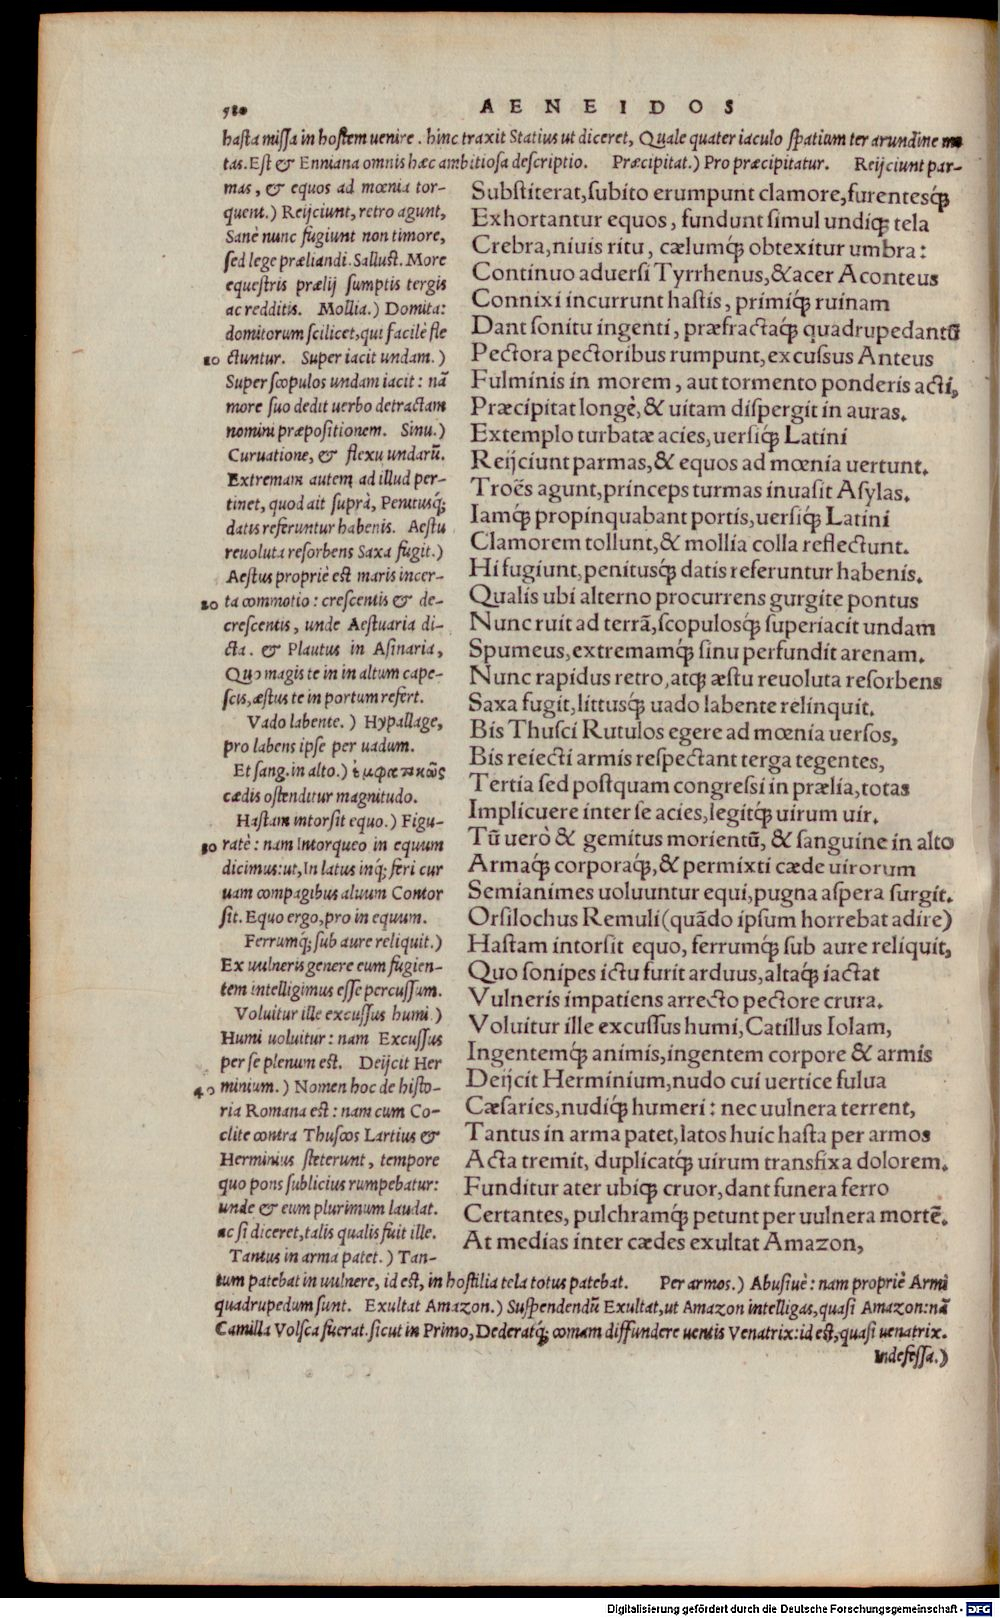 580 AENEIDOS
hasta missa in hostem uenire. hinc traxit Statius ut diceret, Quale quater iaculo spatium ter arundine me
tas. Est & Enniana omnis hæc ambitiosa descriptio. Præcipitat.) Pro præcipitatur. Reijciunt par-
mas, & equos ad mœnia tor-
quent.) Reijciunt, retro agunt,
Sanè nunc fugiunt non timore,
sed lege præliandi. Sallust. More
equestris prælij sumptis tergis
ac redditis. Mollia.) Domita:
domitorum scilicet, qui facilè fle
10 ctuntur. Super iacit undam.)
Super scopulos undam iacit: nā
more suo dedit uerbo detractam
nomini præpositionem. Sinu.)
Curuatione, & flexu undarū.
Extremam autem ad illud per-
tinet, quod ait suprà, Penitusq́;
datis referuntur habenis. Aestu
reuoluta resorbens Saxa fugit.)
Aestus propriè est maris incer-
20 ta commotio: crescentis & de-
crescentis, unde Aestuaria di-
cta. & Plautus in Asinaria,
Quo magis te in in altum cape-
scis, æstus te in portum refert.
Vado labente.) Hypallage,
pro labens ipse per uadum.
Et sang. in alto.) ἐμφατικῶς
cædis ostenditur magnitudo.
Hastam intorsit equo.) Figu-
30 ratè: nam Intorqueo in equum
dicimus: ut, In latus inq́; feri cur
uam compagibus aluum Contor
sit. Equo ergo, pro in equum.
Ferrumq́; sub aure reliquit.)
Ex uulneris genere eum fugien-
tem intelligimus esse percussum.
Voluitur ille excussus humi.)
Humi uoluitur: nam Excussus
per se plenum est. Deijcit Her
40 minium.) Nomen hoc de histo-
ria Romana est: nam cum Co-
clite contra Thuscos Lartius &
Herminius steterunt, tempore
quo pons sublicius rumpebatur:
unde & eum plurimum laudat.
ac si diceret, talis qualis fuit ille.
Tantus in arma patet.) Tan-
Substiterat, subito erumpunt clamore, furentesq́;
Exhortantur equos, fundunt simul undiq; tela
Crebra, niuis ritu, cælumq́; obtexitur umbra:
Continuo aduersi Tyrrhenus, & acer Aconteus
Connixi incurrunt hastis, primiq́; ruinam
Dant sonitu ingenti, præfractaq́; quadrupedantū
Pectora pectoribus rumpunt, excussus Anteus
Fulminis in morem, aut tormento ponderis acti,
Præcipitat longè, & uitam dispergit in auras.
Extemplo turbatæ acies, uersiq́; Latini
Reijciunt parmas, & equos ad mœnia uertunt.
Troës agunt, princeps turmas inuasit Asylas.
Iamq́; propinquabant portis, uersiq́; Latini
Clamorem tollunt, & mollia colla reflectunt.
Hi fugiunt, penitusq́; datis referuntur habenis.
Qualis ubi alterno procurrens gurgite pontus
Nunc ruit ad terrā, scopulosq́; superiacit undam
Spumeus, extremamq́; sinu perfundit arenam.
Nunc rapidus retro, atq; æstu reuoluta resorbens
Saxa fugit, littusq́; uado labente relinquit.
Bis Thusci Rutulos egere ad mœnia uersos,
Bis reiecti armis respectant terga tegentes,
Tertia sed postquam congressi in prælia, totas
Implicuere inter se acies, legitq́; uirum uir.
Tū uerò & gemitus morientū, & sanguine in alto
Armaq́; corporaq́;, & permixti cæde uirorum
Semianimes uoluuntur equi, pugna aspera surgit.
Orsilochus Remuli (quādo ipsum horrebat adire)
Hastam intorsit equo, ferrumq́; sub aure reliquit,
Quo sonipes ictu furit arduus, altaq́; iactat
Vulneris impatiens arrecto pectore crura.
Voluitur ille excussus humi, Catillus Iolam,
Ingentemq́; animis, ingentem corpore & armis
Deijcit Herminium, nudo cui uertice fulua
Cæsaries, nudiq́; humeri: nec uulnera terrent,
Tantus in arma patet, latos huic hasta per armos
Acta tremit, duplicatq́; uirum transfixa dolorem.
Funditur ater ubiq; cruor, dant funera ferro
Certantes, pulchramq́; petunt per uulnera mortē.
At medias inter cædes exultat Amazon,
tum patebat in uulnere, id est, in hostilia tela totus patebat. Per armos.) Abusiuè: nam propriè Armi
quadrupedum sunt. Exultat Amazon.) Suspendendū Exultat, ut Amazon intelligas, quasi Amazon: nā
Camilla Volsca fuerat. sicut in Primo, Dederatq́; comam diffundere uentis Venatrix: id est, quasi uenatrix.
Indefessa.)
Digitalisierung gefördert durch die Deutsche Forschungsgemeinschaft - DFG